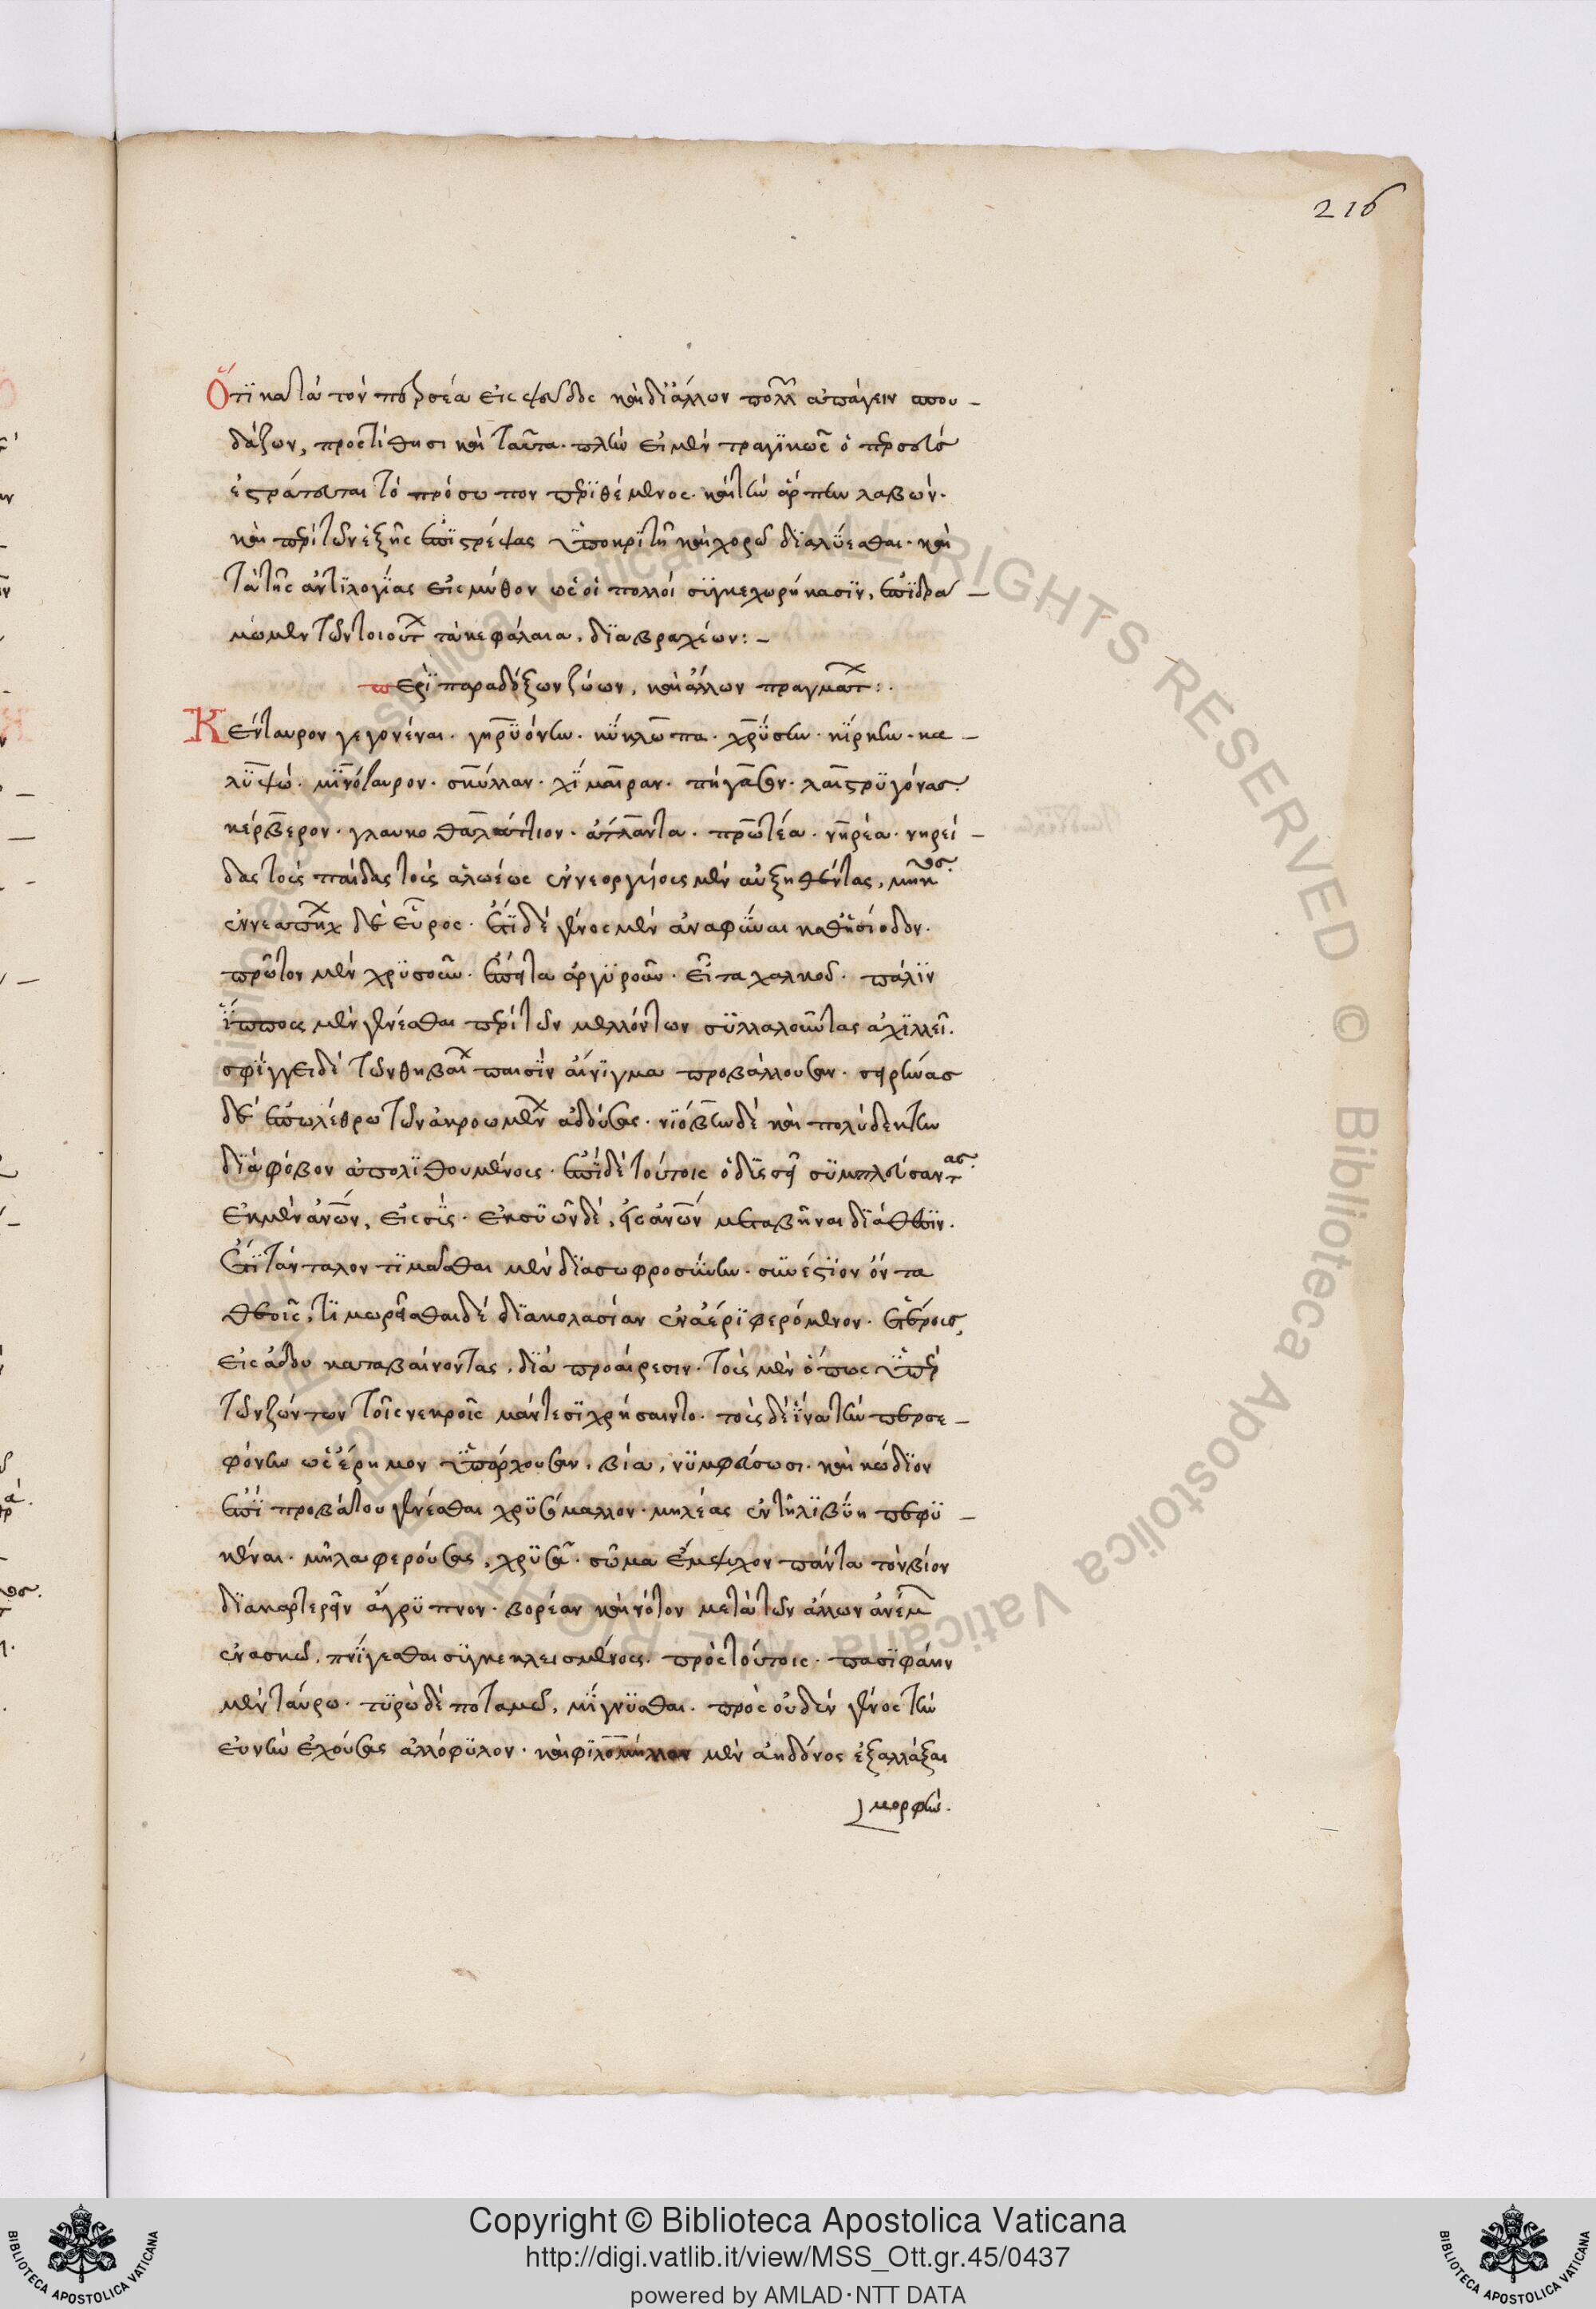 216
Ὅτι κατὰ τὸν περσέα εἰς ψεῦδος καὶ δι᾽ ἄλλων πολλ ἀπάγειν σπου-
δάζων, προστίθησι καὶ ταῦτα. πλὴν εἰ μὲν τραγικῶς ὁ περσεὺς
ἐστράτευται τὸ πρόσωπον περιθέμενος. καὶ τὴν ἅρπην λαβών.
καὶ περὶ τῶν ἑξῆς ἐπιστρέψας ὑποκριτῆ καὶ χορῶ διαλύεσθαι. καὶ
τὰ τῆς ἀντιλογίας εἰς μύθον ὡς οἱ πολλοί συγκεχωρήκασιν, ἐπιδρα-
μώμεν τῶν τοιούτ τὰ κεφάλαια, διαβραχέων:-
περὶ παραδόξων ζώων, καὶ ἄλλων πραγματ:.
Κένταυρον γεγονέναι. γηρυόνην. κύκλωπα. χρύσην. κίρκην. κα-
λυψώ. μινόταυρον. σκύλλαν. χίμαιραν. πήγασον. λαιστρυγόνας.
κέρβερον. γλαυκο θαλάττιον. ἄτλαντα. πρωτέα. νηρέα. νηρεί-
δας τοὺς παίδας τοὺς ἀλωέως ἐννεοργυίους μὲν αὐξηθέντας, μηκος.
ἐννεαπηχ δὲ εὖρος. ἔτι δέ γένος μὲν ἀναφῦναι καθ᾽ ἡσίοδον.
πρῶτον μὲν χρυσοῦν. ἔπειτα ἀργυροῦν. εἶτα χαλκοῦ. πάλιν
ἵππους μὲν γενέσθαι περὶ τῶν μελλόντων συλλαλοῦντας ἀχιλλεῖ.
σφίγγει δὲ τῶν θηβαι παισὶν αἴνιγμα προβάλλουσαν. σειρῆνας
δὲ ἐπωλέθρω τῶν ἀκροωμεν ἀδούσας. νιόβην δὲ καὶ πολυδέκτην
διὰ φόβον ἀπολιθουμένους. ἐπὶ δὲ τούτοις ὀδυσσεῖ συμπλεύσαντας.
ἐκ μὲν ἀνῶν, εἰς σῦς. ἐκ συῶν δέ, εἰς ἀνῶν μεταβῆναι διάθεσιν.
ἔτι τάνταλον τιμᾶσθαι μὲν διασωφροσύνην. συνέστιον ὄντα
θεοῖς, τιμωρεῖσθαι δὲ διακολασίαν ἐναέρι φερόμενον. ἑτέρους,
εἰς ἅδου καταβαίνοντας, διὰ προαίρεσιν. τοὺς μὲν ὅπως ὑπὲρ
τῶν ζώντων τοῖς νεκροῖς μάντεσι χρήσαιντο. τοὺς δὲ ἵνα τὴν περσε-
φόνην ὡς ἔρημον ὑπάρχουσαν, βία, νυμφεύσωσι. καὶ κώδιον
ἐπὶ προβάτου γενέσθαι χρυσόμαλλον. μηλέας ἐν τῆ λιβύη πεφυ-
κέναι. μῆλα φερούσας, χρυσᾶ. σῶμα ἔμψυχον πάντα τὸν βίον
διακαρτερεῖν ἄγρυπνον. βορέαν καὶ νότον μετὰ τῶν ἄλλων ἀνέμ
ἐν ασκῶ, πνίγεσθαι συγκεκλεισμένους. πρὸς τούτοις. πασιφάην
μὲν ταύρω. τυρὼ δὲ ποταμῶ, μίγνυσθαι. πρὸς οὐδὲν γένος τὴν
εὐνὴν ἐχούσας ἀλλόφυλον. καὶ φιλομήλαν μὲν ἀηδόνος ἐξαλλάξαι
μορφὴν.
Copyright © Biblioteca Apostolica Vaticana
http://digi.vatlib.it/view/MSS_Ott.gr.45/0437
powered by AMLAD·NTT DATA